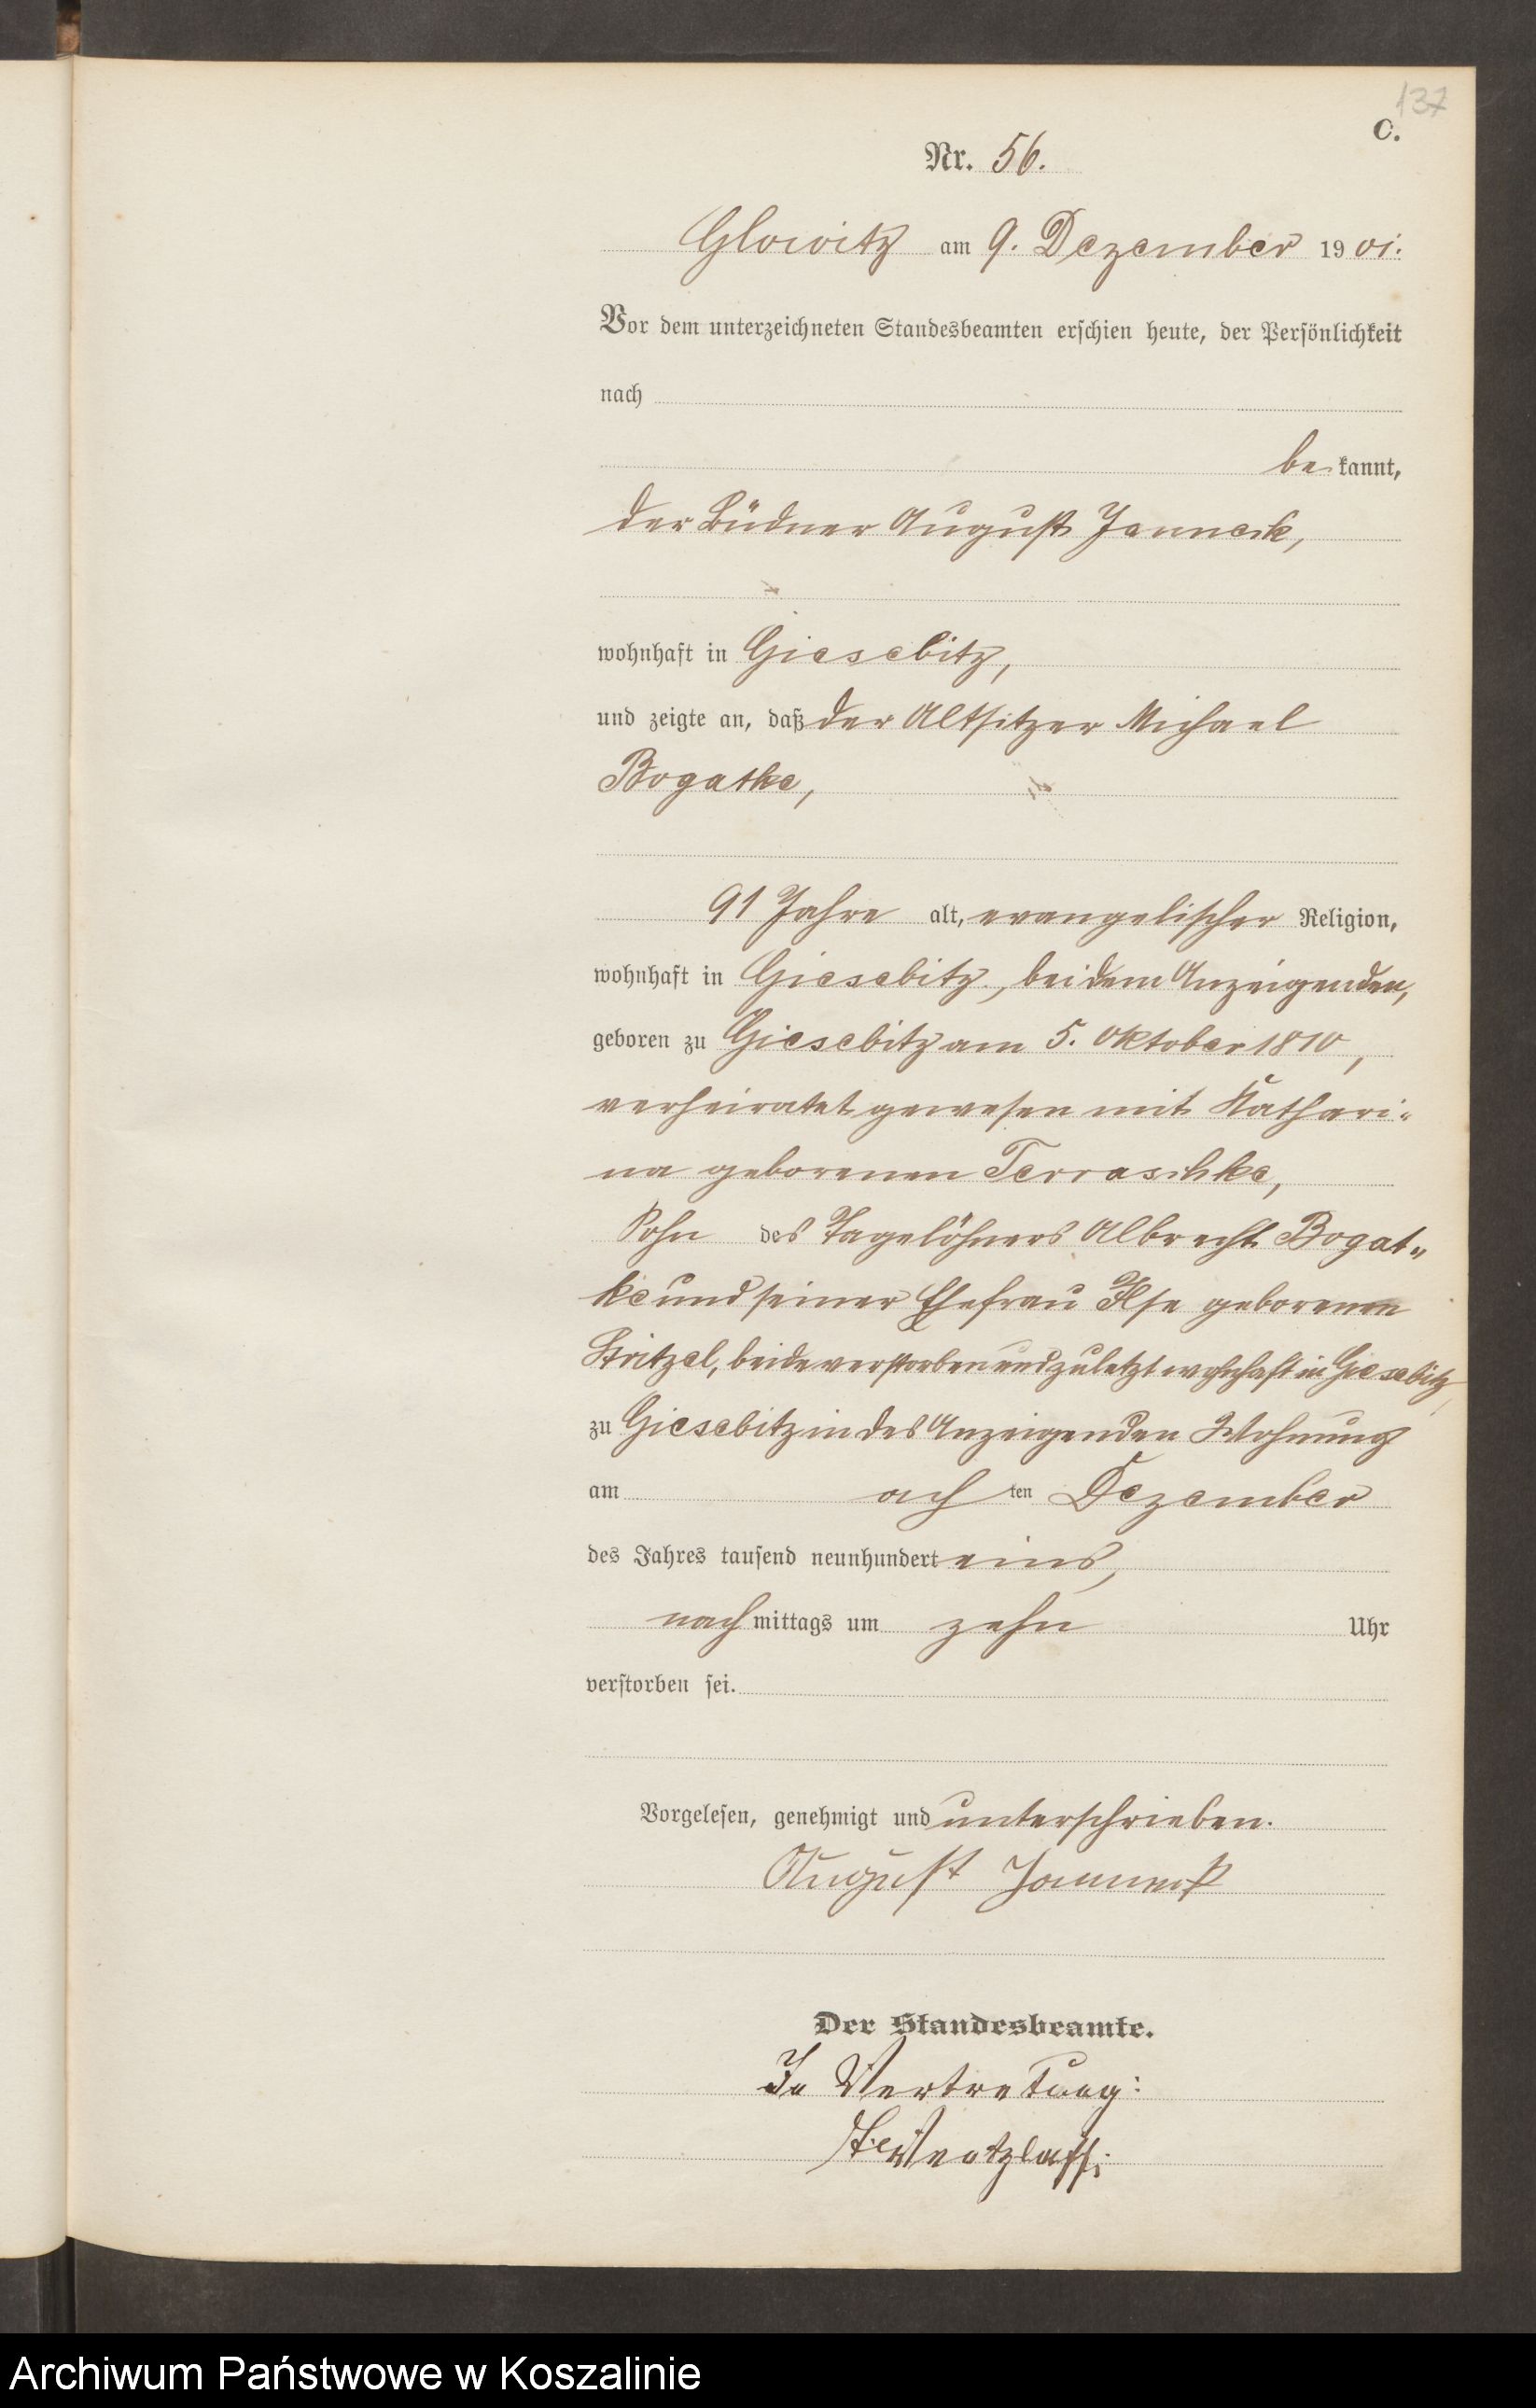 137
C.
Nr. 56.
Glowitz am 9. Dezember 1901.
Vor dem unterzeichneten Standesbeamten erschien heute, der Persönlichkeit
nach
be kannt,
der Büdner August Janneck,
wohnhaft in Giesebitz,
und zeigte an, daß der Altsitzer Michael
Bogatke,
91 Jahre alt, evangelischer Religion,
wohnhaft in Giesebitz, bei dem Anzeigenden,
geboren zu Giesebitz am 5. Oktober 1810,
verheiratet gewesen mit Kathari-
na geborenen Terraschke,
Sohn des Tagelöhners Albrecht Bogat-
ke und seiner Ehefrau Ilse geborenen
Stritzel, beide verstorben und zuletzt wohnhaft in Giesebitz,
zu Giesebitz in des Anzeigenden Wohnung
am ach ten Dezember
des Jahres tausend neunhundert eins,
nach mittags um zehn Uhr
verstorben sei.
Vorgelesen, genehmigt und unterschrieben.
August Janneck
Der Standesbeamte.
In Vertretung:
Archiwum Państwowe w Koszalinie